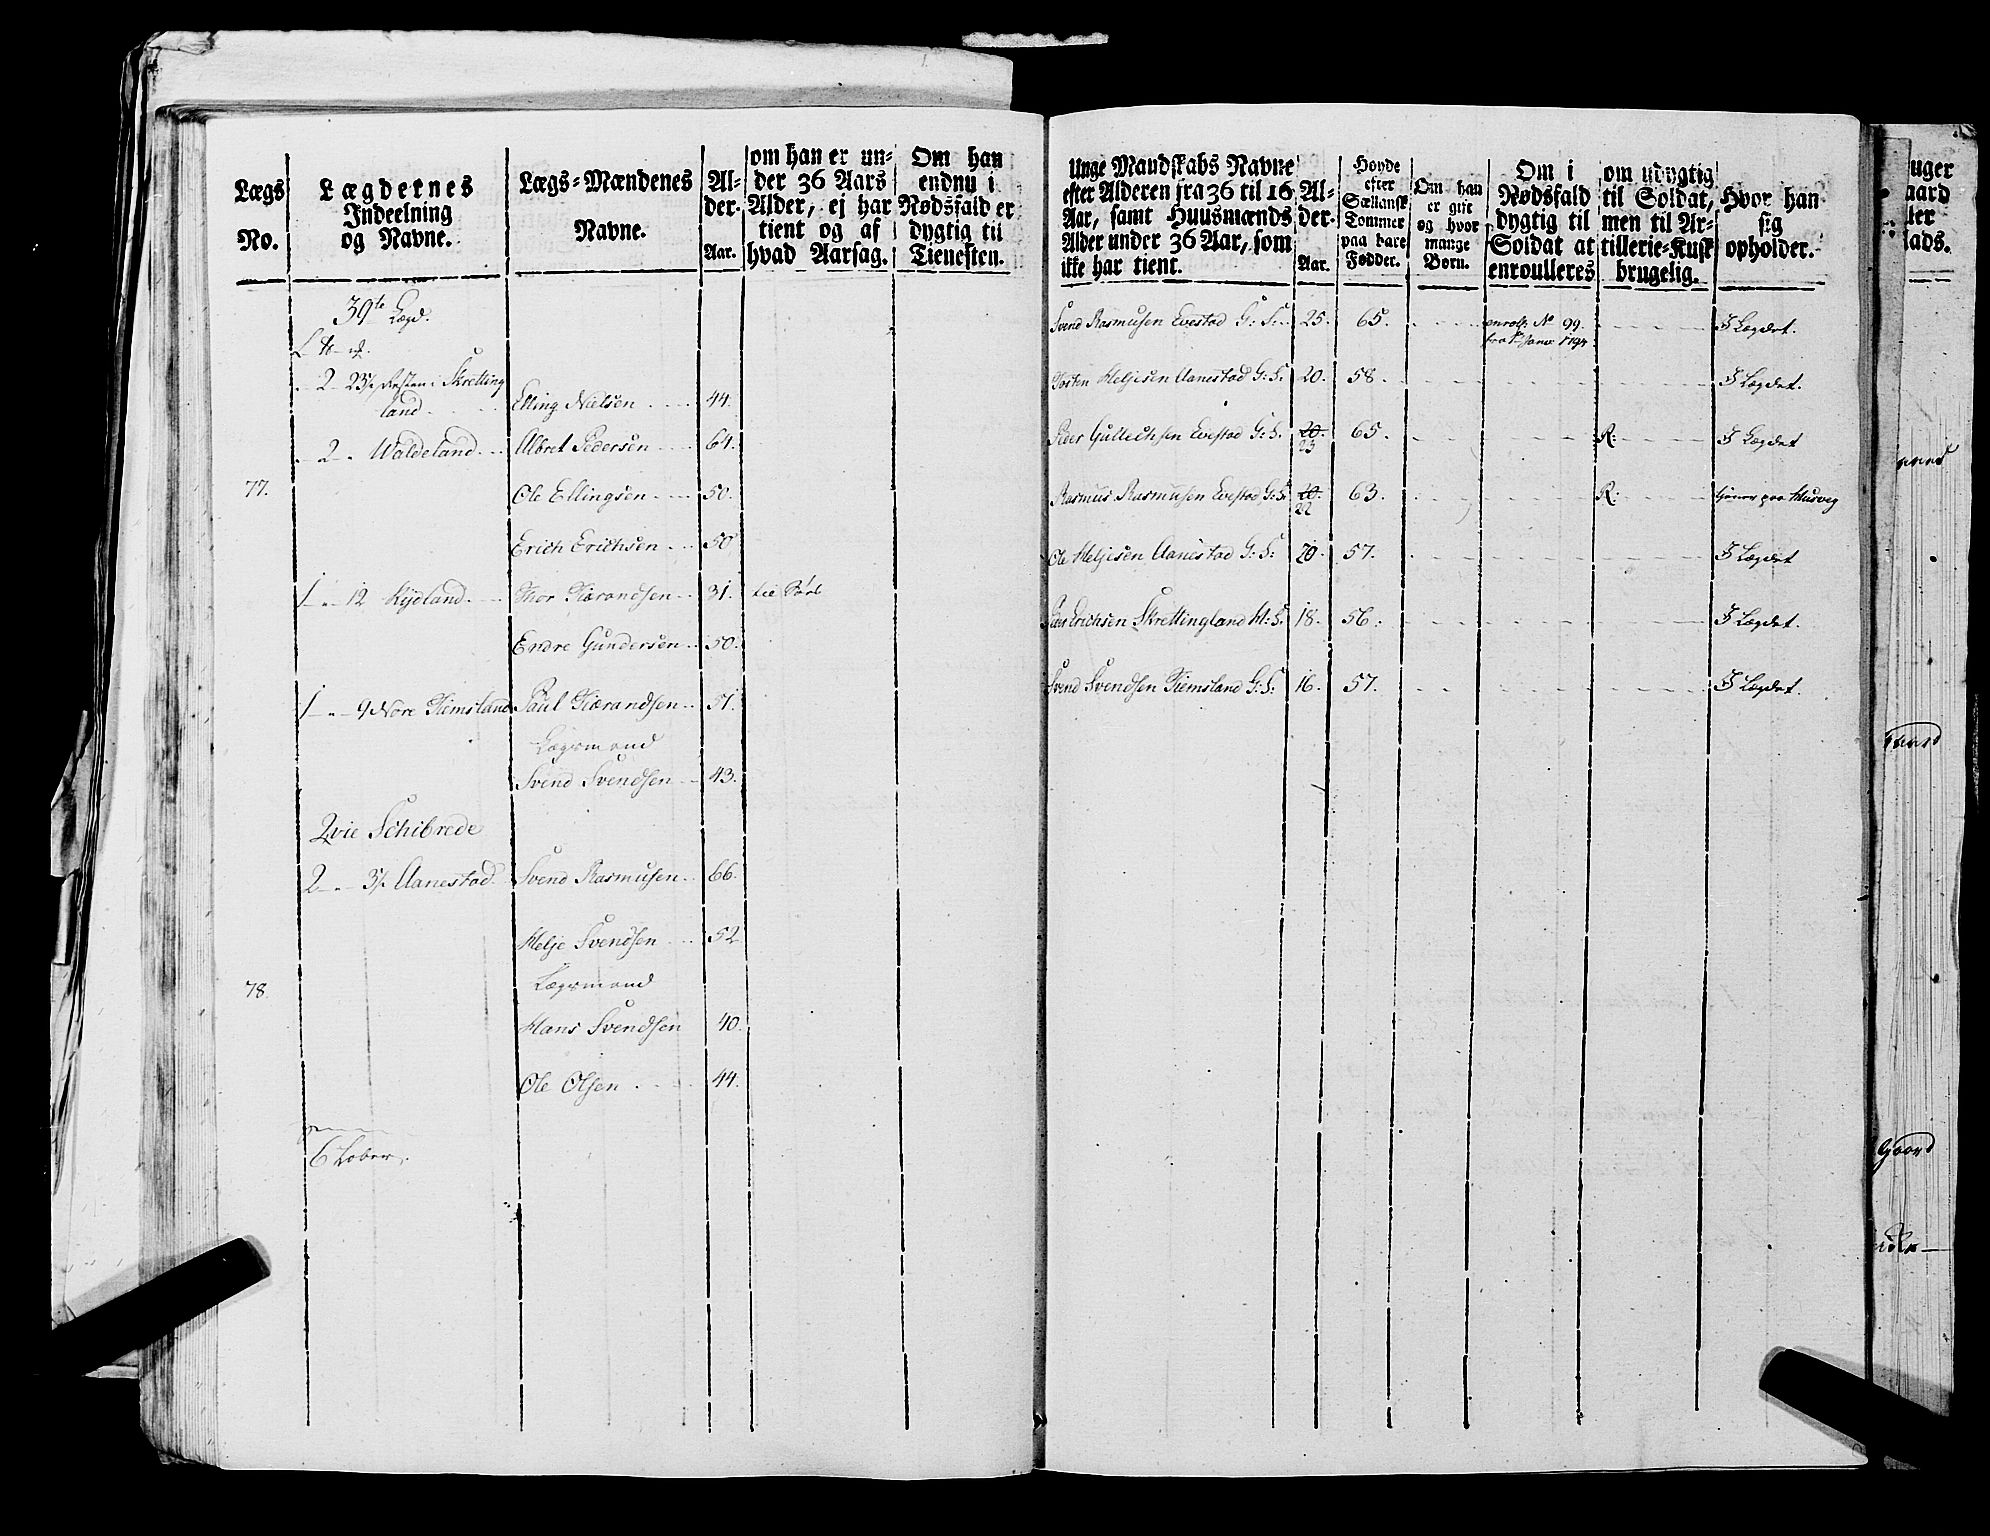 Lægs No.
Lægdernes Indeelning og Navne.
Lægs-Mændenes Navne.
Alder. Aar.
om han er under 36 Aars Alder, ej har tient og af hvad Aarsag.
Om han endnu i Nødsfald er dygtig til Tienesten.
39te Lægd.
2 Skretting
land Elling Nielsen 44.
2 Waldeland Albret Pedersen 64.
77. Ole Ellingsen 50.
Erich Erichsen 50
1 12 Rijdland Thor Tiærandsen 31.
Endre Gundersen 50.
1 9 Nore Tiemsland Paul Tiærandsen 51.
Lægsmand
Svend Svendsen 43.
Qvie Schibrede
2 Aanestad Svend Rasmusen 66.
Helje Svendsen 52
Lægsmand
78. Hans Svendsen 40.
Ole Olsen 44.
6 Løber.
Unge Mandskabs Navne efter Alderen fra 36 til 16 Aar, samt Huusmænds Alder under 36 Aar, som ikke har tient.
Alder. Aar.
Høyde efter Sællansk Tommer paa bare Fødder.
Om han er gift og hvor mange Børn.
Om i Nødsfald dygtig til Soldat at enroulleres
om udygtig til Soldat, men til Artillerie-Kusk brugelig.
Hvor han sig opholder.
Svend Rasmusen Evestad G: S: 25. 65. enrol: No 99. I Lægdet.
Tosten Heljesen Aanestad G: S. 20. 58. I Lægdet.
Peder Gullechsen Evestad G: S. 20. 23 65. R: I Lægdet
Rasmus Rasmusen Evestad G: S: 20. 22 63. R: tjener paa Husveg
Ole Heljesen Aanestad G: S: 20. 57. I Lægdet
Peder Erichsen Skrettingland H: S. 18. 56. I Lægdet.
Svend Svendsen Tiemsland G: S. 16. 57. I Lægdet.
Gaard